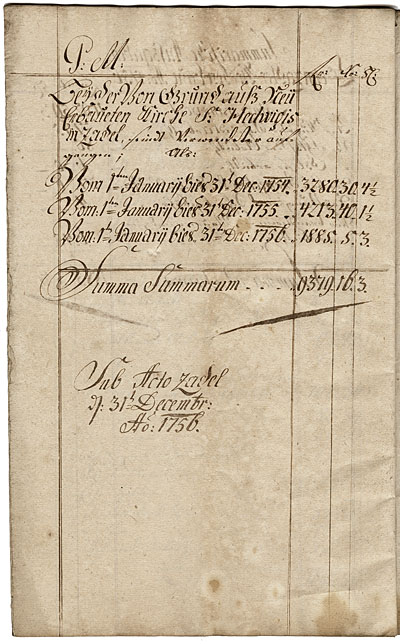 P: M:
Bey der Von Grund auß Neu
Erbaueten Kirche St: Hedwigis
in Zadel, seindt Verwendeter auf-
gangen; Als:
Vom 1ten January bies 31t Dec: 1754. 3280. 30. 4½
Vom: 1ten January bies 31t Dec: 1755. 4213. 40. 1½
Vom: 1t January bies 31t Dec: 1756. 1885. 5. 3.
Summa Summarum 9379. 16. 3.
Sub Acto Zadel
d: 31t Decembr:
Ao: 1756.